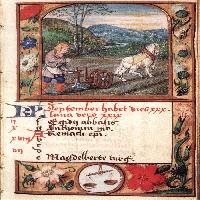 KL September habet dies xxx.
luna vero xxix
f Egidij abbatis
n g Anthonini mr.
x A Remacli epi.
xviii b
vii c
d
e Magdelberte virg.